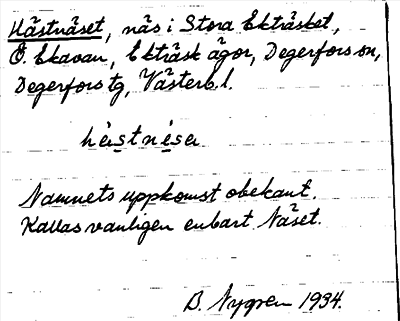 Hästnäset, näs i Stora Ekträsket,
Ö. Ekavan, Ekträsk ägor, Degerfors sn,
Degerfors tg, Västerb. l.
hɛ̀stnɛ́sɑ
Namnets uppkomst obekant.
Kallas vanligen enbart Näset.
B. Nygren 1934.